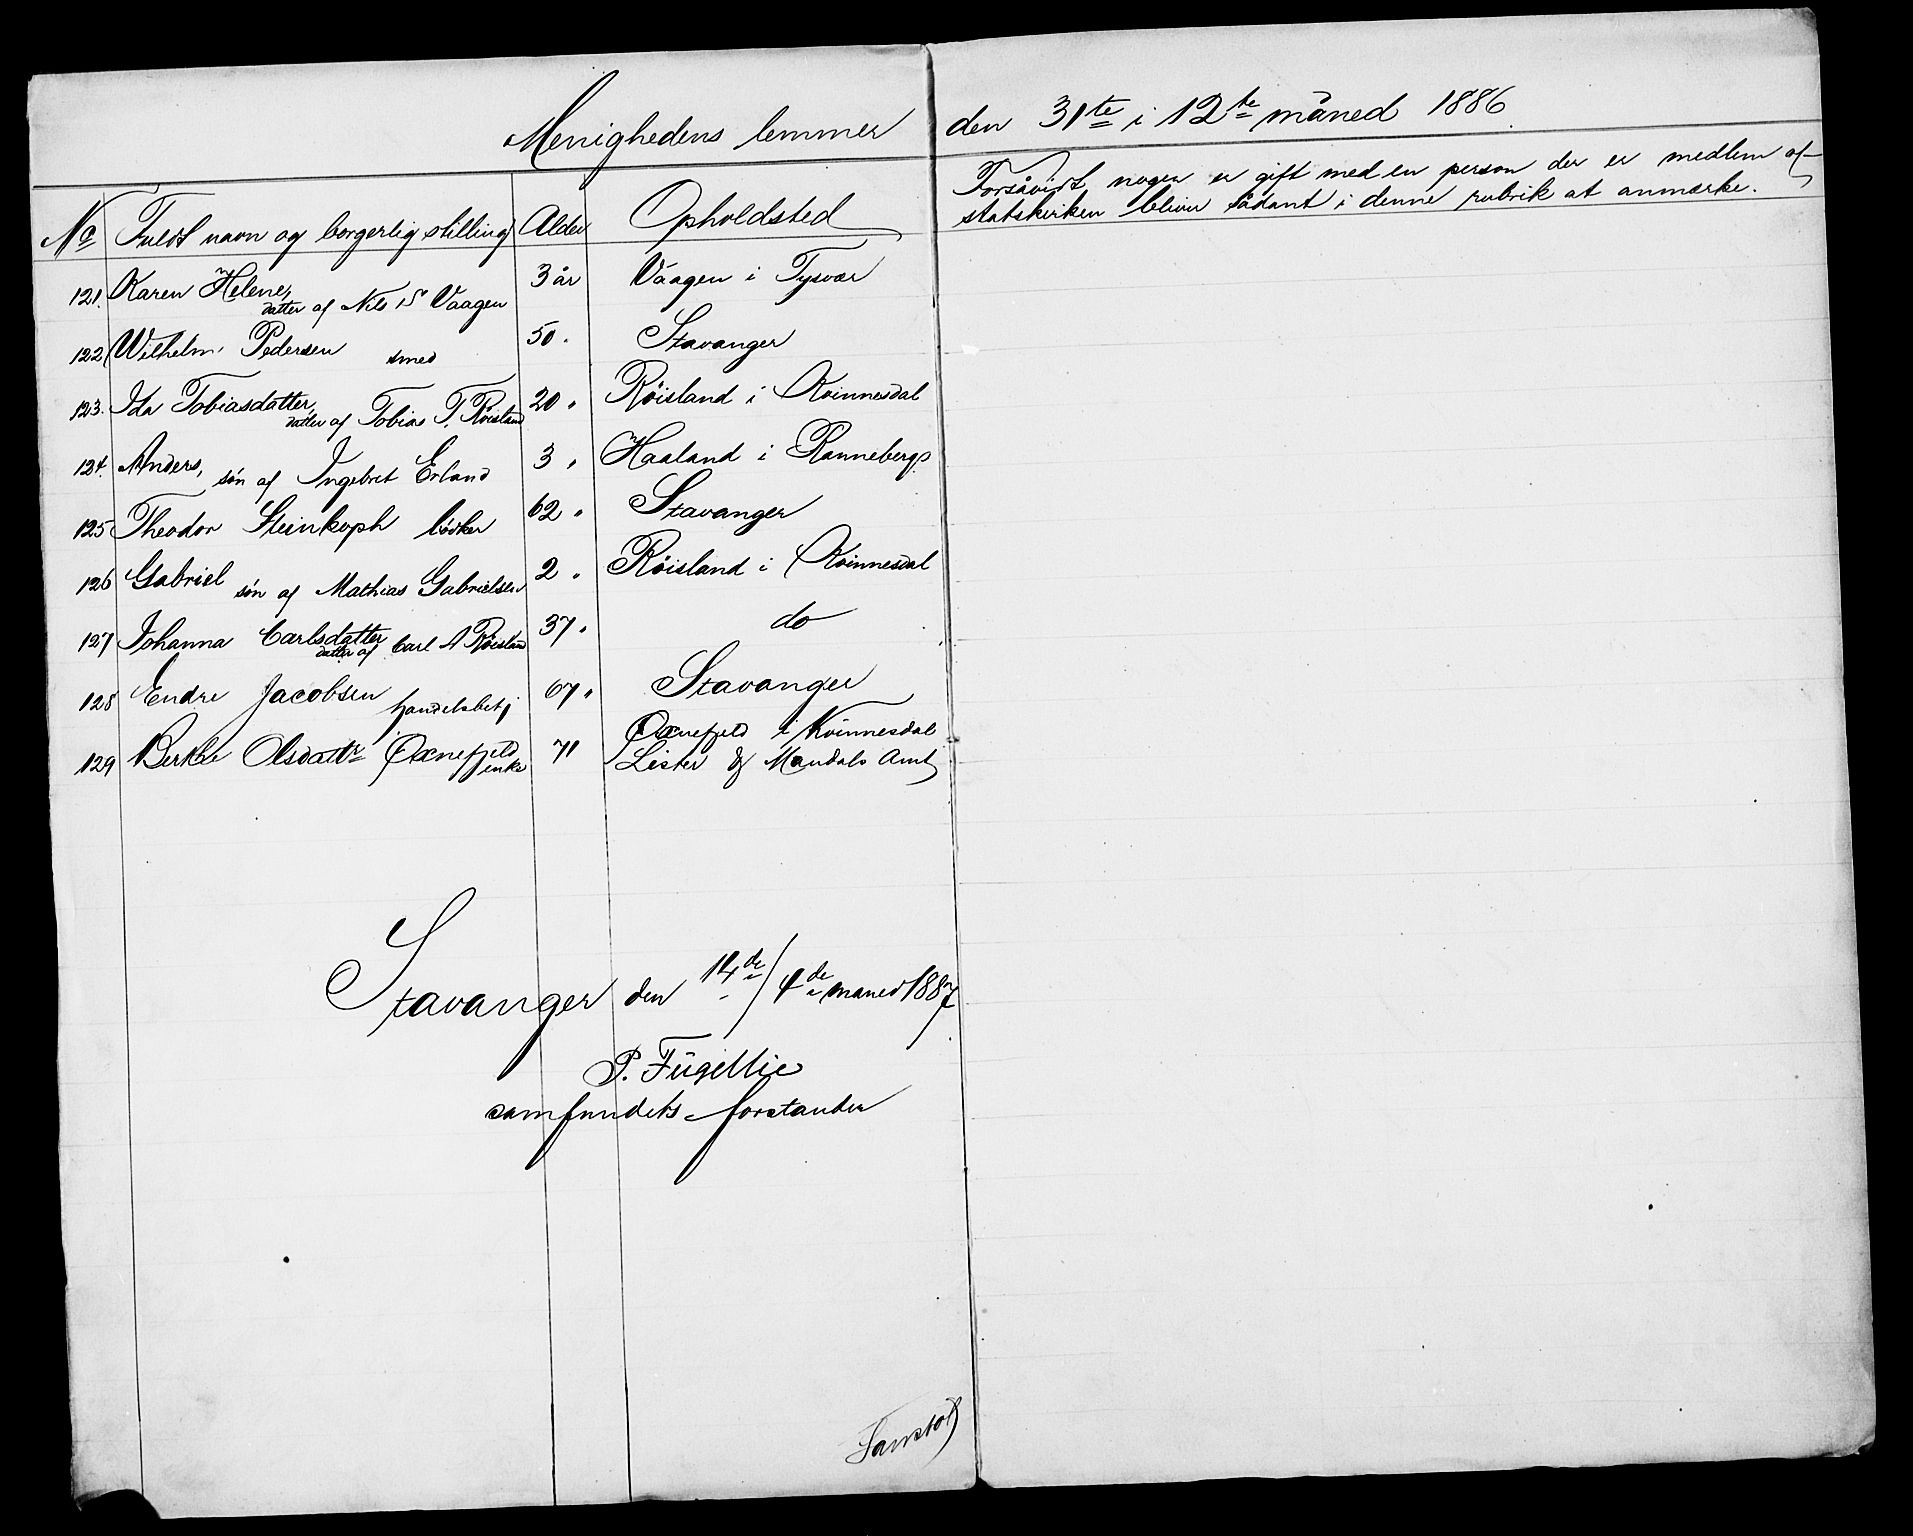 Menighedens lemmer den 31te i 12te måned 1886.
No Fuldt navn og borgerlig stilling Alder Opholdsted Forsåvidt nogen er gift med en person der er medlem af
statskirken bliver sådant i denne rubrik at anmærke.
121. Karen Helene, datter af Nils S Vaagen 3 år Vaagen i Tysvær
122 Wilhelm Pedersen smed 50 " Stavanger
123. Ida Tobiasdatter, datter af Tobias T. Röisland 20 " Röisland i Kvinnesdal
124. Anders, sön af Ingebret Erland 3 " Haaland i Rannebergs
125 Theodor Steinkoph bödker 62 " Stavanger
126 Gabriel sön af Mathias Gabrielsen 2 " Röisland i Kvinnesdal
127 Johanna Carlsdatter datter af Carl A Röisland 37 " do
128 Endre Jacobsen handelsbetj 67 " Stavanger
129 Berthe Olsdattr Oxnefjeld enke 71 Oxnefjeld i Kvinnesdal
Lister & Mandals Amt
Stavanger den 14de/4de maned 1887.
P. Fügellie
samfundets forstander